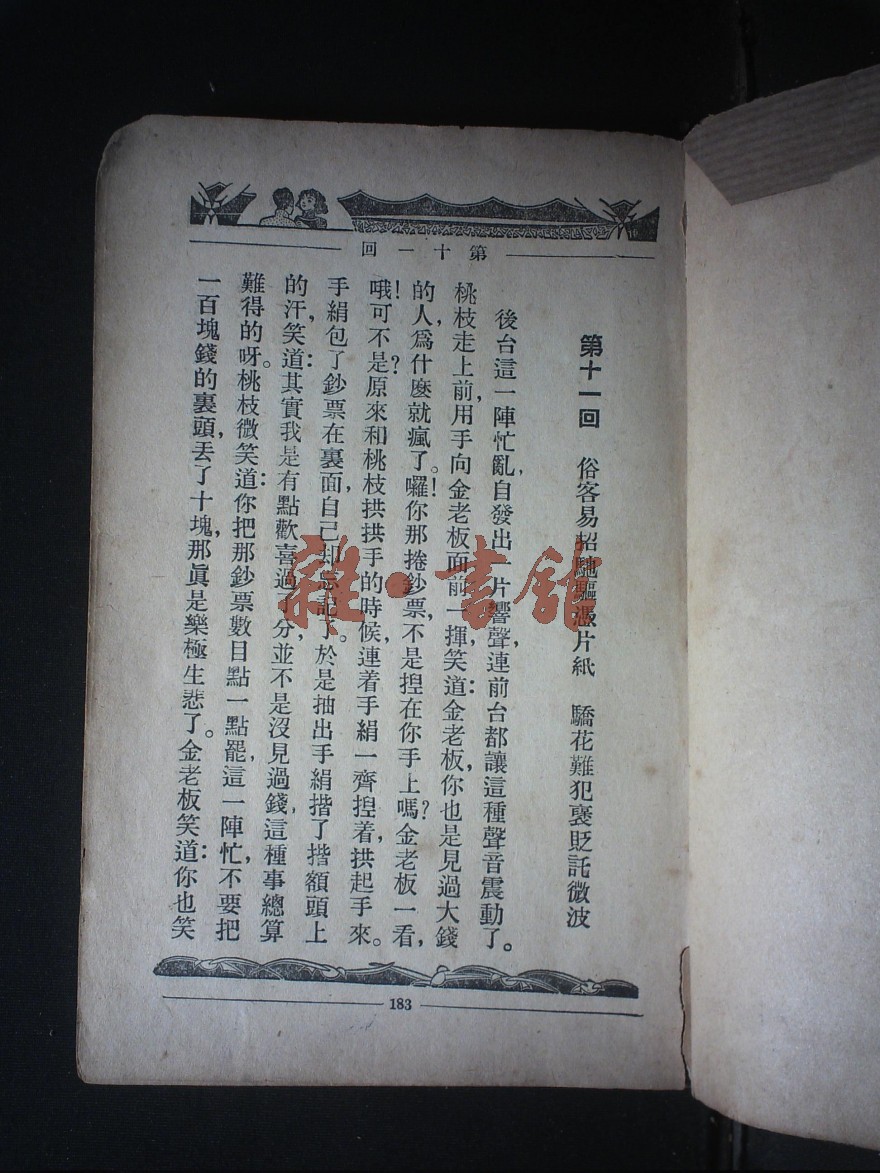 第十一回
第十一回　俗客易招馳驅憑片紙　驕花難犯褒貶託微波
後台這一陣忙亂，自發出一片響聲，連前台都讓這種聲音震動了。
桃枝走上前，用手向金老板面前一揮，笑道：金老板，你也是見過大錢
的人，爲什麽就瘋了。囉！你那捲鈔票，不是揑在你手上嗎？金老板一看，
！哦可不是？原來和桃枝拱拱手的時候，連着手絹一齊揑着，拱起手來。
手絹包了鈔票在裏面，自己却忘記了。於是抽出手絹揩了揩額頭上
的汗，笑道：其實我是有點歡喜過了分，並不是沒見過錢，這種事總算
難得的呀。桃枝微笑道：你把那鈔票數目點一點罷，這一陣忙，不要把
一百塊錢的裏頭，丟了十塊，那眞是樂極生悲了。金老板笑道：你也笑
183
雜·書館